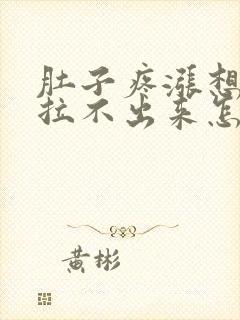 肚子疼涨想
拉不出来怎
黄彬